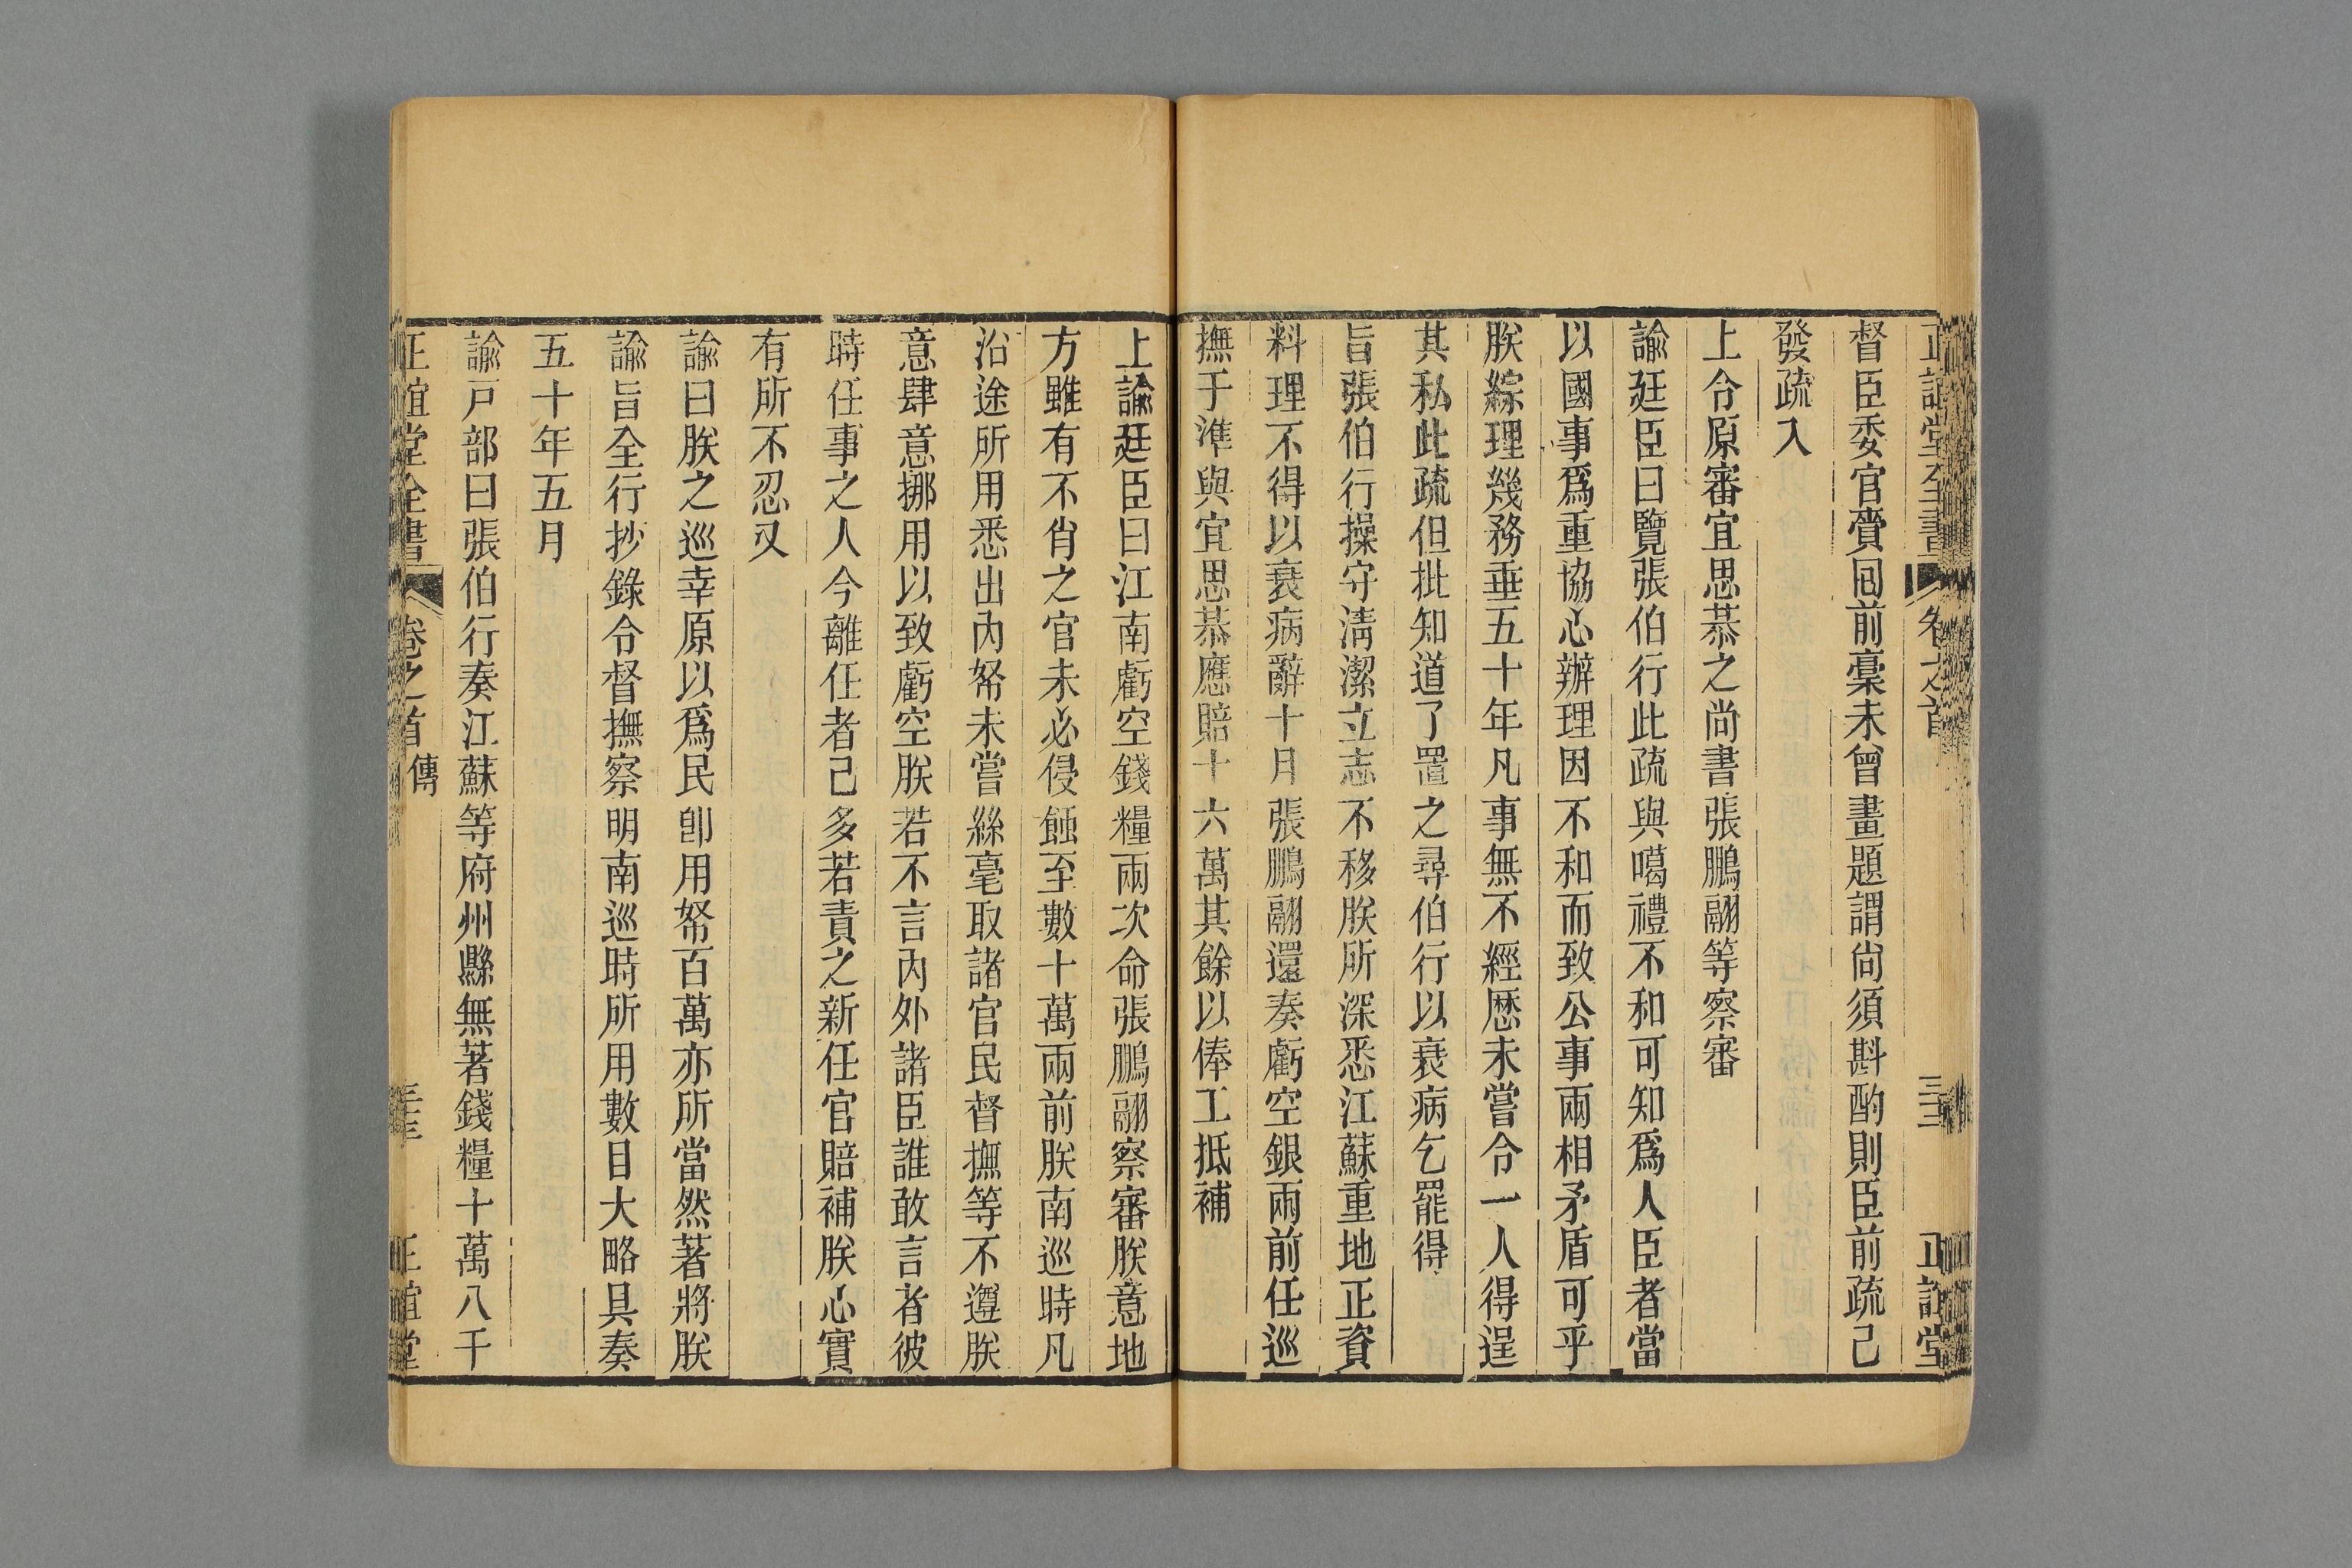 正誼堂全書 卷之首 正誼堂
督臣委官賫囘前稾未曾畫題謂尙須斟酌則臣前疏已
發疏入
上令原審宜思恭之尚書張鵬翮等察審
諭廷臣曰覽張伯行此疏與噶禮不和可知爲人臣者當
以國事爲重協心辦理因不和而致公事兩相矛盾可乎
朕綜理幾務垂五十年凡事無不經歷未嘗令一人得逞
其私此疏但批知道了置之尋伯行以衰病乞罷得
旨張伯行操守清潔立志不移朕所深悉江蘇重地正資
料理不得以衰病辭十月張鵬翮還奏虧空銀兩前任巡
撫于準與宜思恭應賠十六萬其餘以俸工抵補
上諭廷臣曰江南虧空錢糧兩次命張鵬翮察審朕意地
方雖有不肖之官未必侵蝕至數十萬兩前朕南巡時凡
沿途所用悉出內帑未嘗絲毫取諸官民督撫等不遵朕
意肆意挪用以致虧空朕若不言內外諸臣誰敢言者彼
時任事之人今離任者已多若責之新任官賠補朕心實
有所不忍又
諭曰朕之巡幸原以爲民卽用帑百萬亦所當然著將朕
諭旨全行抄錄令督撫察明南巡時所用數目大略具奏
五十年五月
諭戸部曰張伯行奏江蘇等府州縣無著錢糧十萬八千
正誼堂全書 卷之首 傳 正誼堂